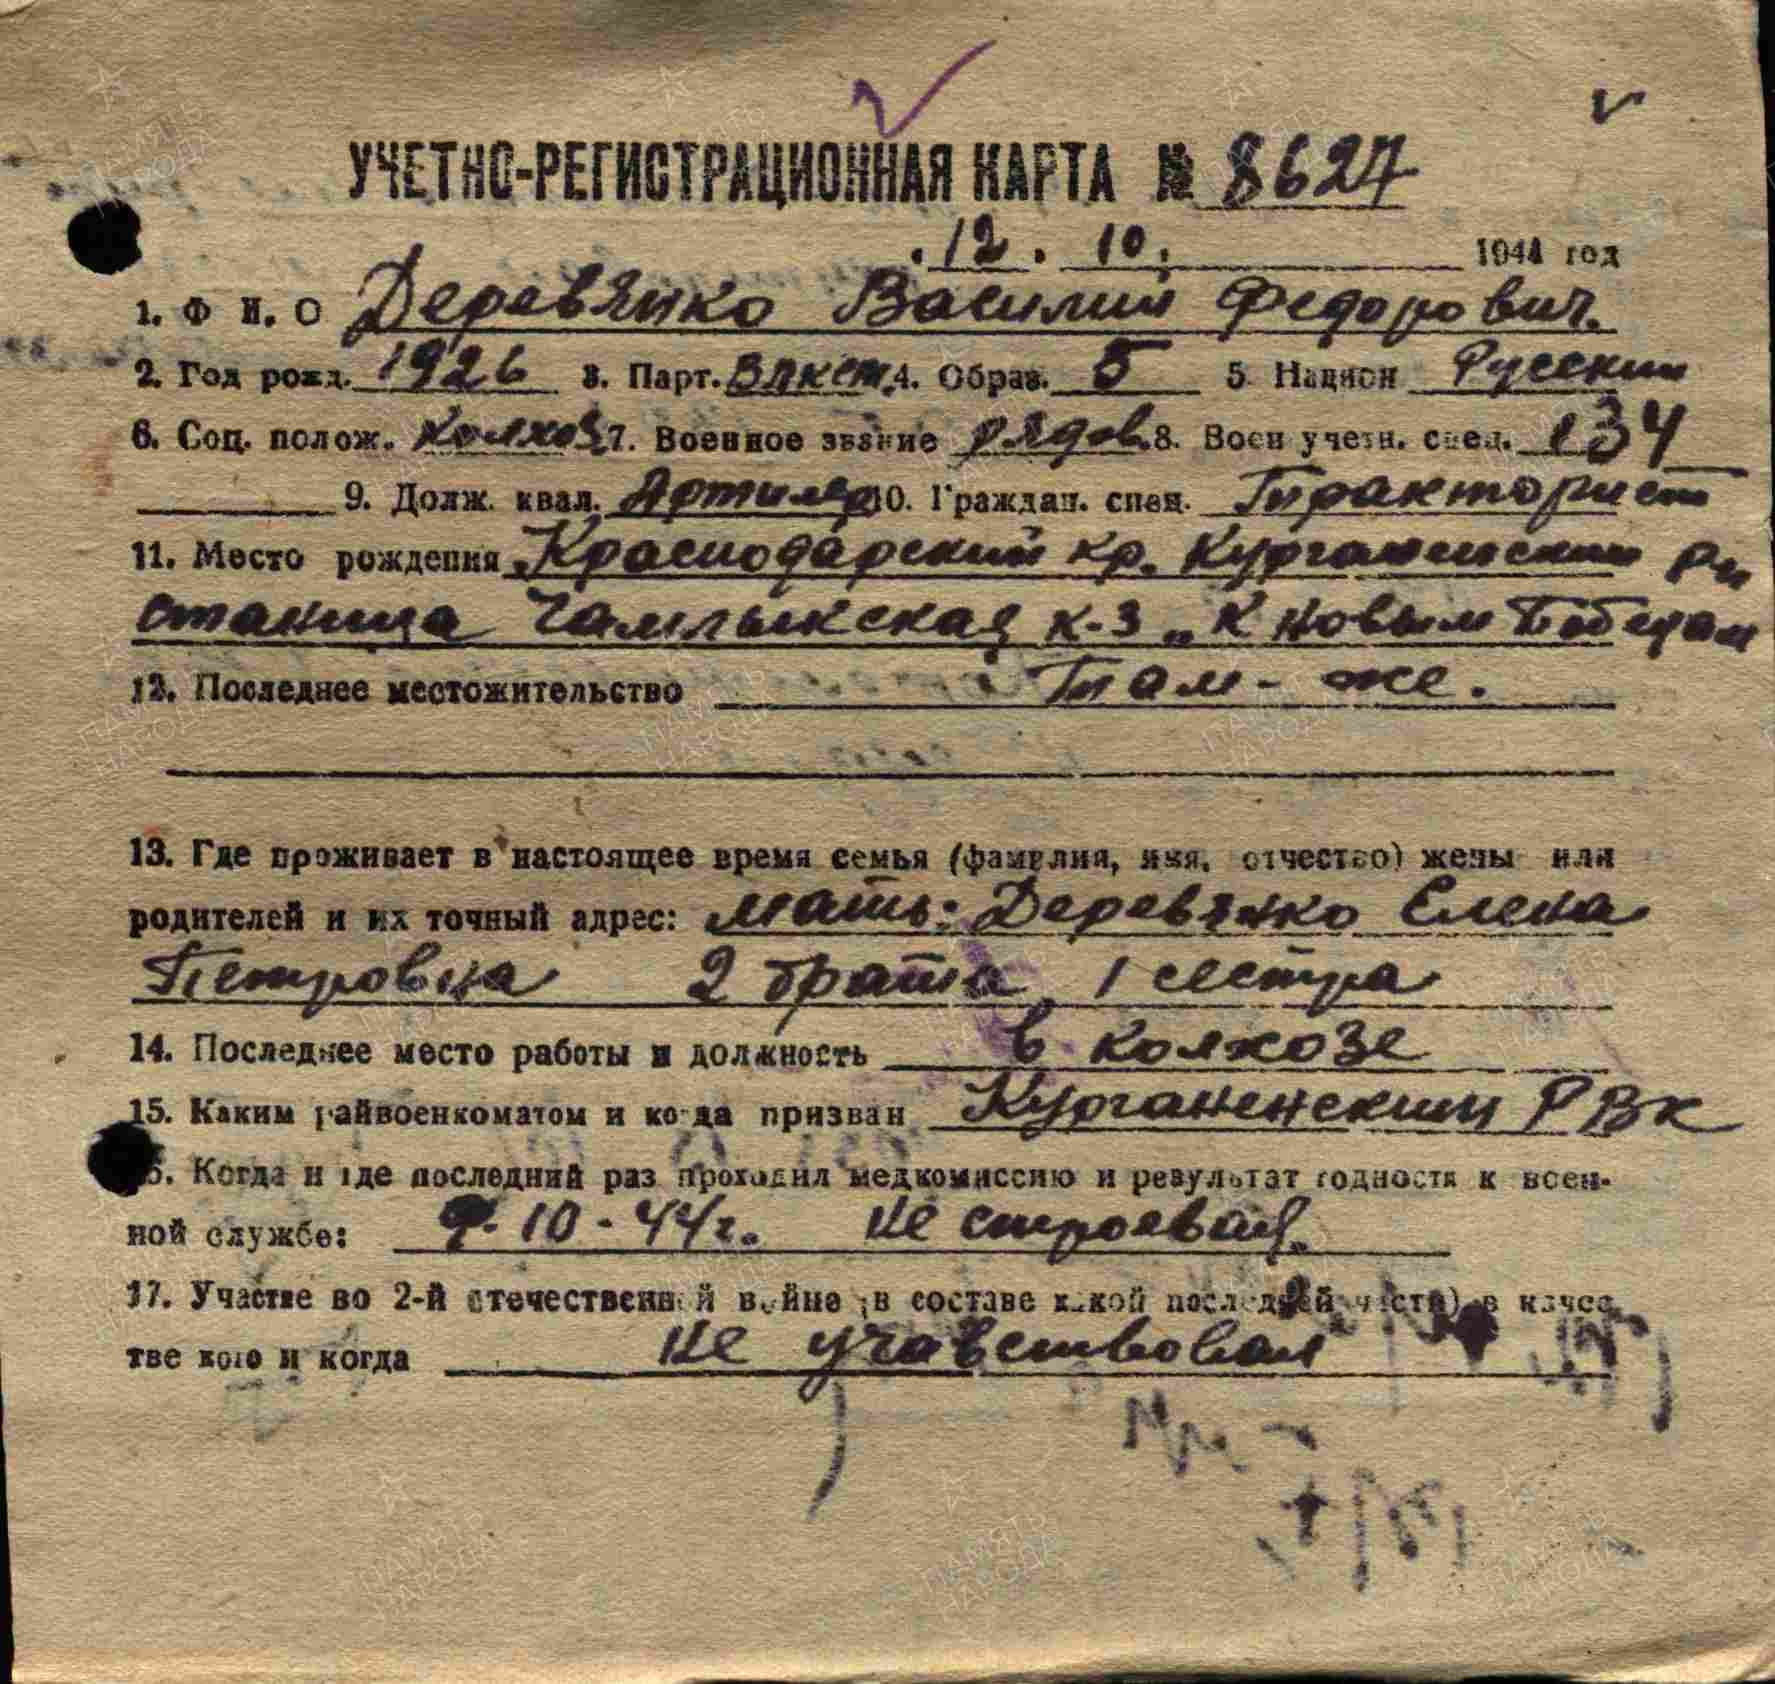 УЧЕТНО-РЕГИСТРАЦИОННАЯ КАРТА № 8627
12. 10. 1944 год
1. Ф И. О Деревянко Василий Федорович.
2. Год рожд. 1926 3. Парт. ВЛКСМ 4. Образ. 5 5. Национ Русский
6. Соц. полож. Колхоз. 7. Военное звание рядов. 8. Воен учетн. спец. 134
9. Долж. квал. Артилер 10. Граждан. спец. Тракторист
11. Место рождения Краснодарский кр. Курганенский Р-н
станица Чамлыкская к-з „К новым Победам
12. Последнее местожительство Там-же.
13. Где проживает в настоящее время семья (фамилия, имя, отчество) жены или
родителей и их точный адрес: Мать: Деревянко Елена
Петровна 2 брата, 1 сестра
14. Последнее место работы и должность в колхозе
15. Каким райвоенкоматом и когда призван Курганенский РВК
16. Когда и где последний раз проходил медкомиссию и результат годности к воен-
ной службе: 9-10-44г. не строевая.
17. Участие во 2-й отечественной войне (в составе какой последней части) в качес
тве кого и когда не учавствовал
ПАМЯТЬ НАРОДА